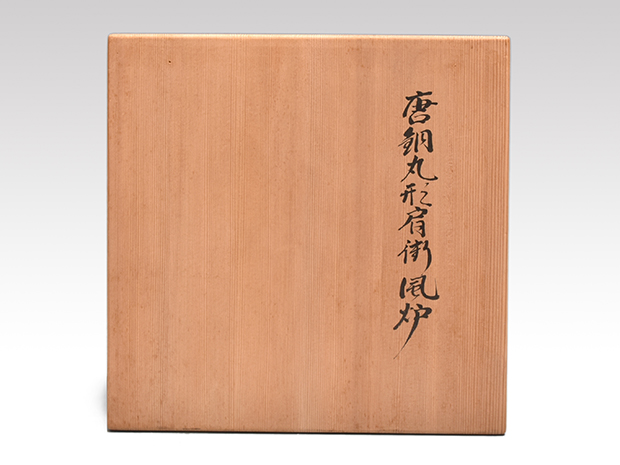 唐銅丸形肩衝風炉